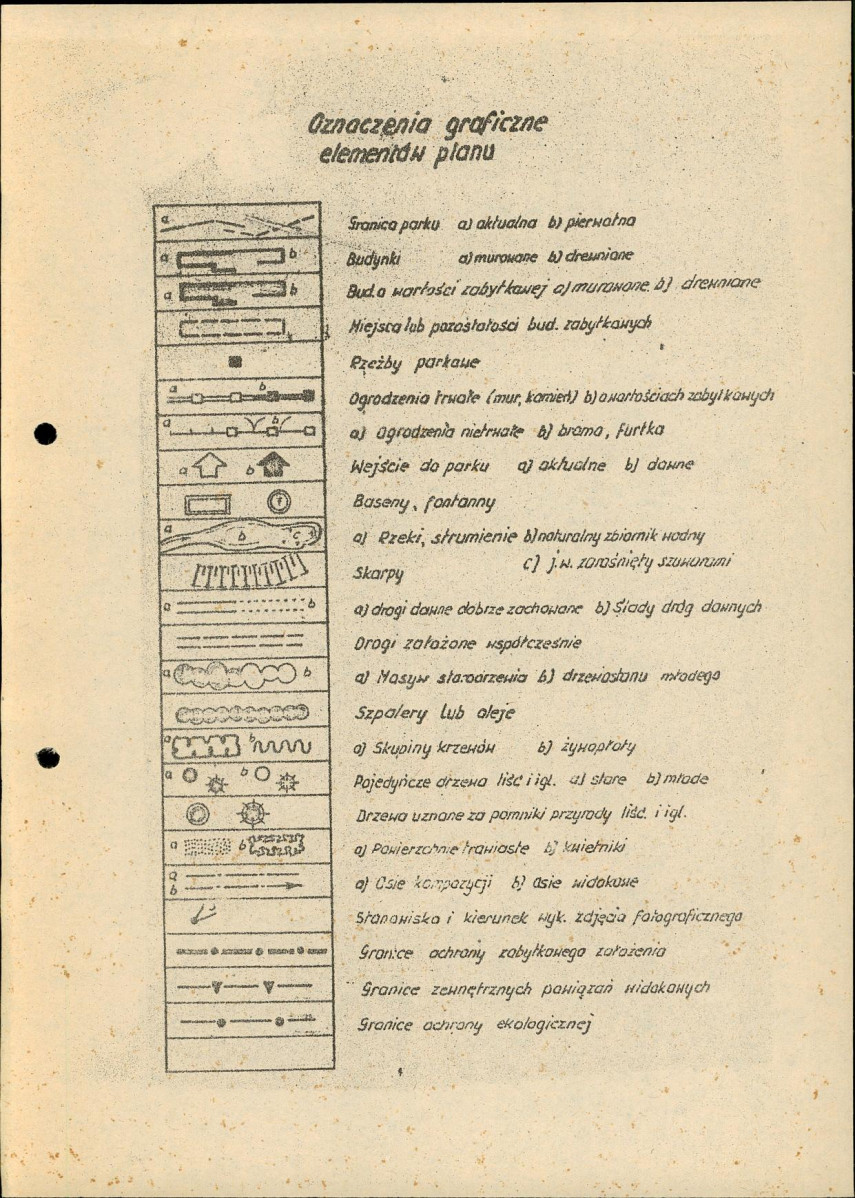 Oznaczenia graficzne
elementów planu
a Granica parku a) aktualna b) pierwotna
a b Budynki a) murowane b) drewniane
a b Bud. o wartości zabytkowej a) murowane b) drewniane
Miejsca lub pozostałości bud. zabytkowych
Rzeźby parkowe
a b Ogrodzenia trwałe (mur, kamień) b) o wartościach zabytkowych
a b a) Ogrodzenia nietrwałe b) brama, furtka
a b Wejście do parku a) aktualne b) dawne
f Baseny, fontanny
a b c a) Rzeki, strumienie b) naturalny zbiornik wodny
c) j.w. zarośnięty szuwarami
Skarpy
a b a) drogi dawne dobrze zachowane b) Ślady dróg dawnych
Drogi założone współcześnie
a b a) Masyw starodrzewia b) drzewostanu młodego
Szpalery lub aleje
a b a) Skupiny krzewów b) żywopłoty
a b Pojedyńcze drzewa liść i igl. a) stare b) młode
Drzewa uznane za pomniki przyrody liść. i igl.
a b a) Powierzchnie trawiaste b) kwietniki
a b a) Osie kompozycji b) Osie widokowe
Stanowiska i kierunek wyk. zdjęcia fotograficznego
Granice ochrony zabytkowego założenia
Granice zewnętrznych powiązań widokowych
Granice ochrony ekologicznej